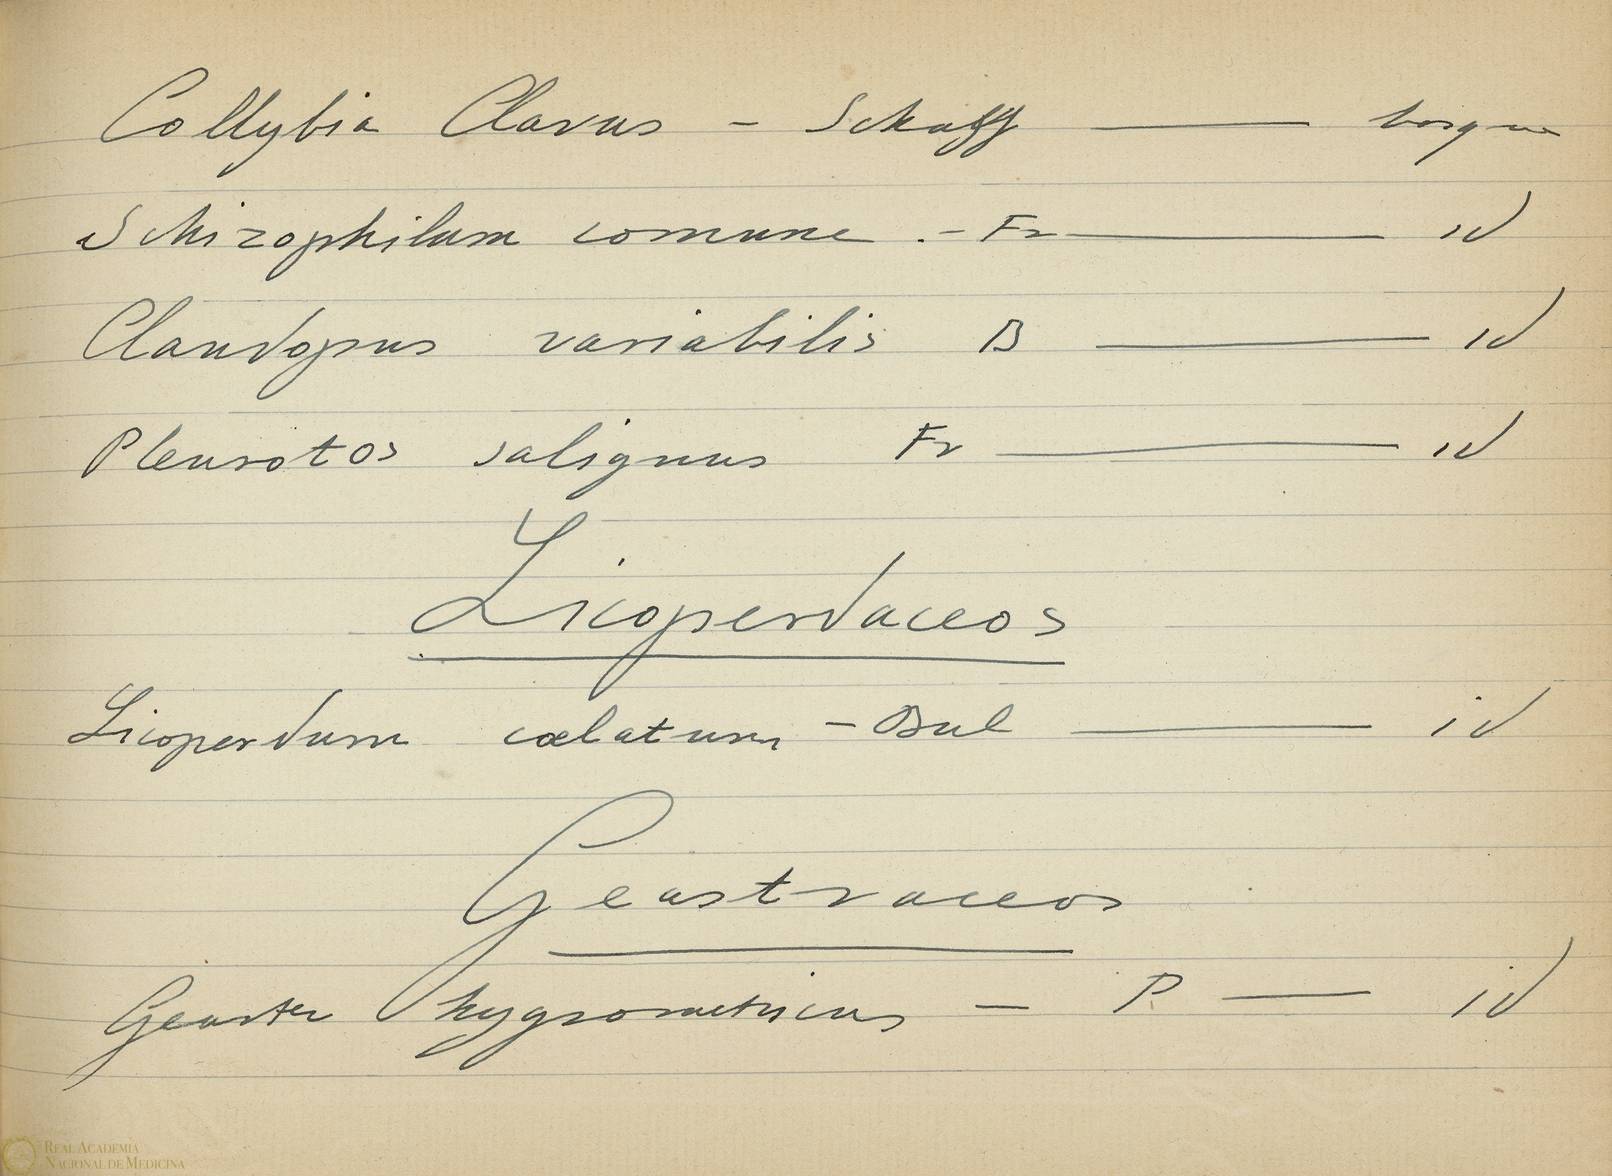 Collybia Clavus - Schaff — bosque
Schizophilum comune .- Fr — id
Claudopus variabilis B — id
Pleurotos salignus Fr — id
Licoperdaceos
Licoperdum cœlatum - Bul — id
Geastraceos
Geaster hygrometricus - P. — id
REAL ACADEMIA
NACIONAL DE MEDICINA